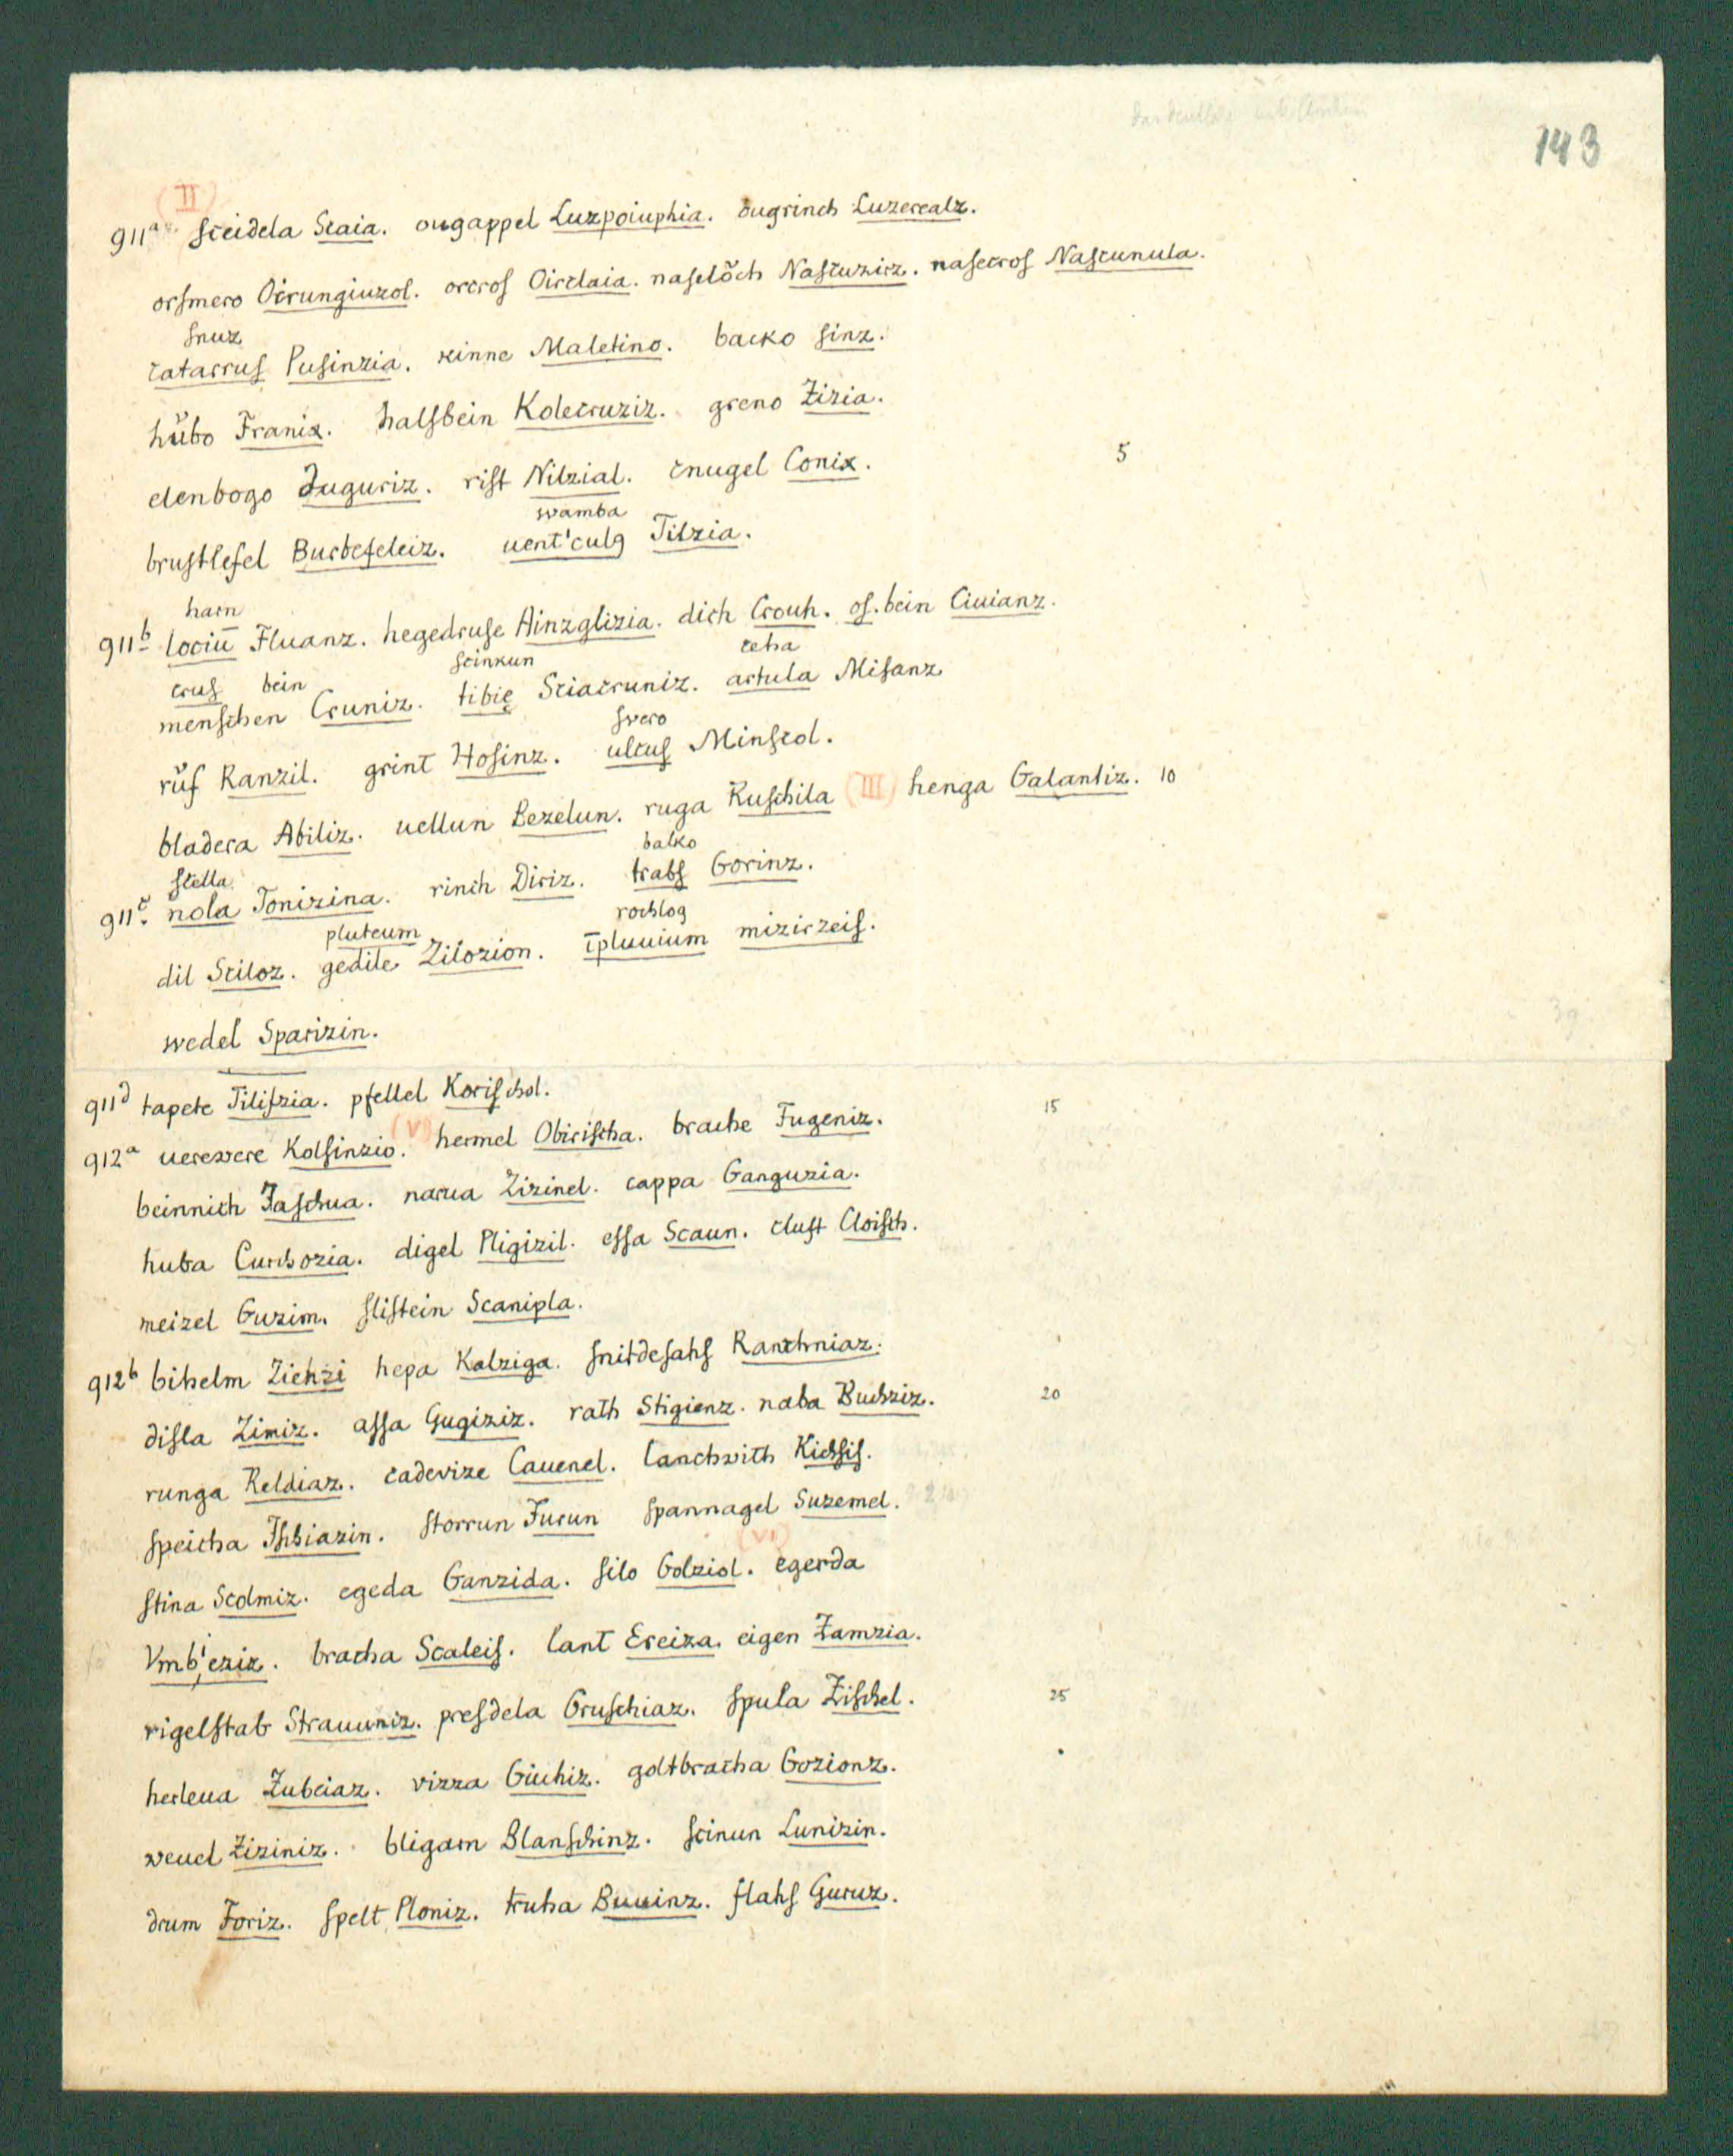 143
(II)
911a sceidela Scaia. ougappel Luzpoiuphia. ougrinch Luzerealz.
orsmero Oirungiuzol. orcros Oirclaia. naselöch Nascuzirz. nasecros Nascunula.
snuz
catarrus Pusinzia. kinne Maletino. backo sinz.
hůbo Franix. halsbein Kolecruziz. greno Zizia.
elenbogo Juguriz. rist Nilzial. cnugel Conix. 5
wamba
brustlefel Burbefeleiz. uent'culg Tilzia.
harn
911b lociū Fluanz. hegedruse Ainzglizia. dich Crouh. os. bein Ciuianz.
crus bein scinkun ceha
menschen Cruniz. tibię Sciacruniz. artula Misanz
swero
růf Ranzil. grint Hosinz. ulcus Minscol.
bladera Abiliz. uellun Bezelun. ruga Ruschila (III) henga Galantiz. 10
stella balko
911c nola Tonizina. rinch Diriz. trabs Gorinz.
pluteum rochlog
dil Sciloz. gedile Zilozion. īpluuium mizirzeis.
wedel Sparizin.
911d tapete Tilifzia. pfellel Korischol.
912a uerewere Kolsinzio. (V) hermel Obirischa. brache Fugeniz. 15
beinnich Jaschua. narua Zizinel. cappa Ganguzia.
huba Curchozia. digel Pligizil. essa Scaun. cluft Cloisch.
meizel Guzim. slistein Scanipla.
912b bihelm Ziehzi hepa Kalziga. snitdesahs Ranchniaz.
disla Zimiz. assa Gugiziz. rath Stigienz. naba Buchziz. 20
runga Reldiaz. cadevize Cauenel. lanchwith Kichsis.
speicha Ihbiazin. storrun Furun spannagel Suzemel.
(VI)
stina Scolmiz. egeda Ganzida. silo Golziol. egerda
Vmb'eziz. bracha Scaleis. lant Ereiza. eigen Zamzia.
rigelstab Strauuniz. presdela Gruschiaz. spula Zischel. 25
herleua Zubeiaz. vizza Giuhiz. goltbracha Gozionz.
weuel Ziziniz. bligarn Blanschinz. scinun Lunizin.
drum Foriz. spelt Ploniz. truha Buuinz. flahs Guruz.